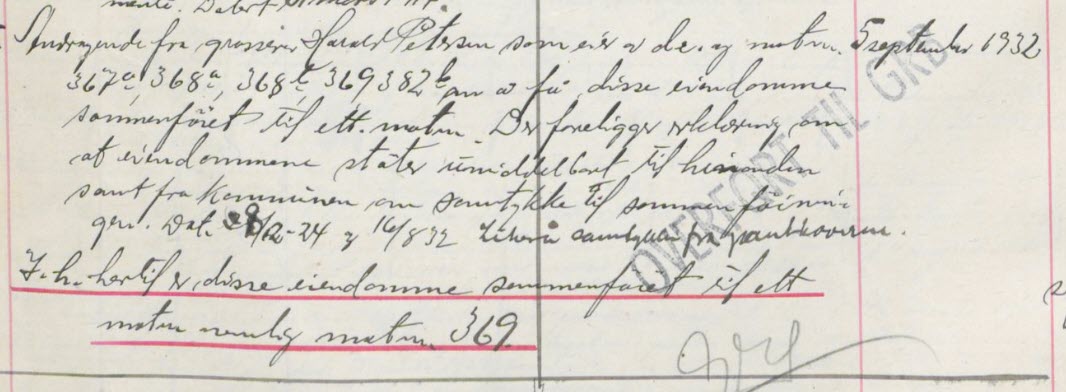 Andragende fra grosserer Harald Petersen som eier av de. og matrn. 5 september 1932
367a, 368a, 368b, 369 382b om å få disse eiendomme
sammenføiet til ett. matrn. Der foreligger erklæring om
at eiendommene støter umiddelbart til hinanden
samt fra kommunen om samtykke til sammenføinin-
gen. Dat. /12-24 og 16/8 32 Likeså samtykke fra panthaverne.
I. h. hertil er, disse eiendomme sammenføiet til ett
matrn nemlig matrn. 369.
OVERFØRT TIL GRB